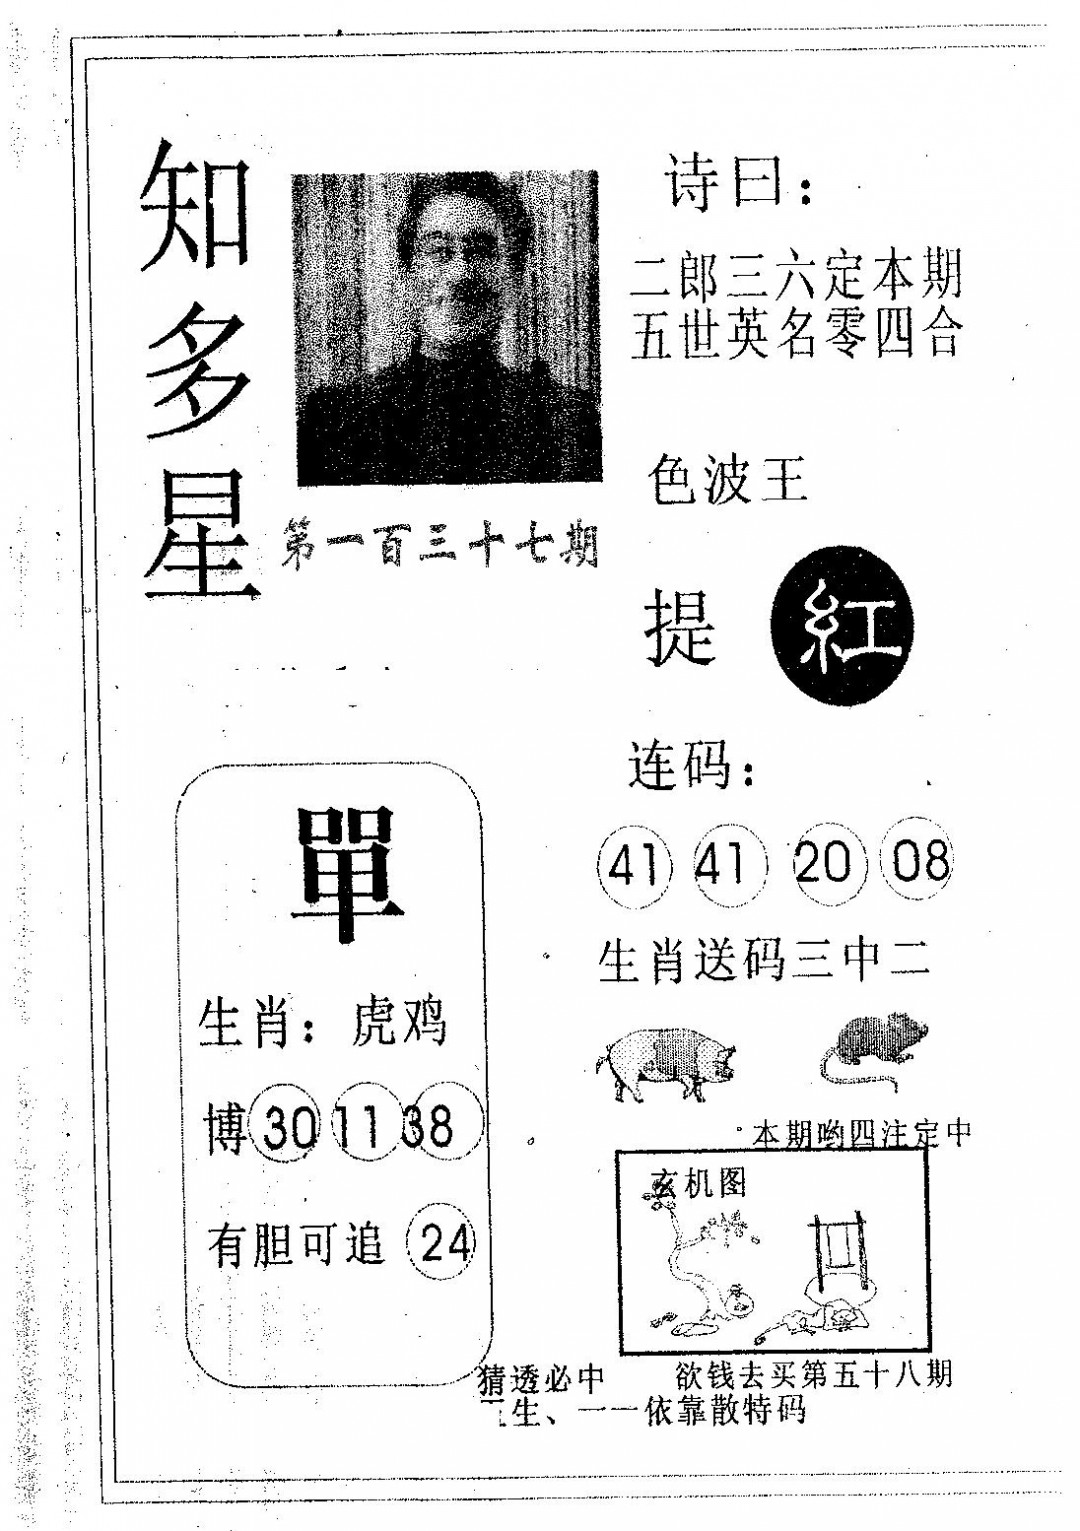 知多星
诗曰：
二郎三六定本期
五世英名零四合
色波王
第一百三十七期
提 紅
连码：
41 41 20 08
生肖送码三中二
單
生肖：虎鸡
博 30 11 38
有胆可追 24
本期哟四注定中
玄机图
猜透必中 欲钱去买第五十八期
生、一一依靠散特码